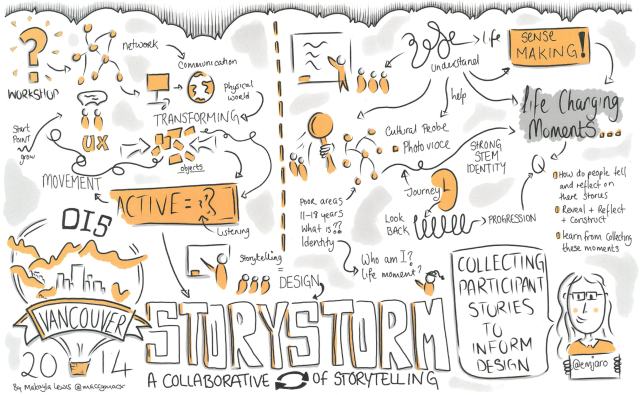 ?
WORKSHOP
network
Communication
Physical
world
TRANSFORMING
Start
Point
grow
UX
objects
MOVEMENT
ACTIVE =
Listening
DIS
VANCOUVER
2014
By Makayla Lewis @maccymacx
Storytelling
= DESIGN
STORYSTORM
A COLLABORATIVE OF STORYTELLING
life
Understand
help
SENSE
MAKING!
life Changing
Moments...
Cultural Probe
Photo voice
STRONG
STEM
IDENTITY
Journey
LOOK
BACK
PROGRESSION
Poor areas
11-18 years
What is??
Identity
Who am I?
life moment?
Q
How do people tell
and reflect on
there stories
Reveal + Reflect
+ Construct
learn from collecting
these moments
COLLECTING
PARTICIPANT
STORIES
TO
INFORM
DESIGN